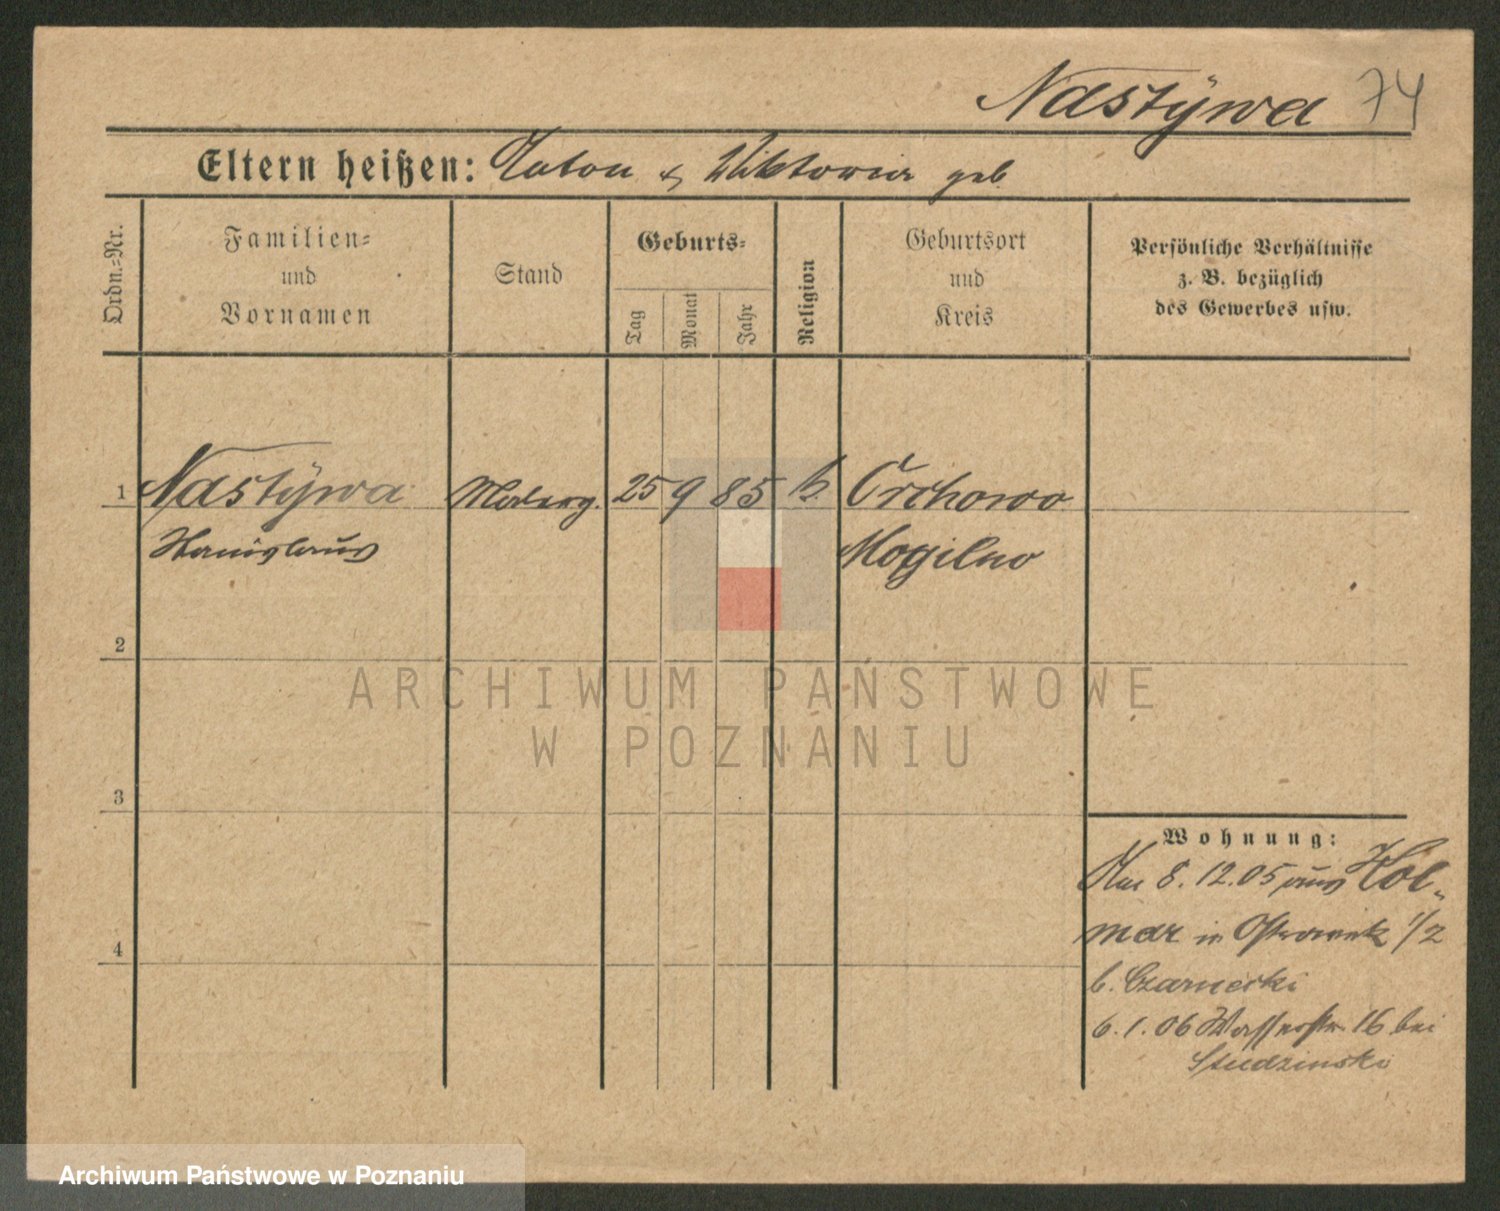 Nastÿwa 74
Eltern heißen: Anton & Viktoria geb
Ordn.-Nr.
Familien-
und
Vornamen
Stand
Geburts-
Tag
Monat
Jahr
Religion
Geburtsort
und
Kreis
Persönliche Verhältnisse
z. B. bezüglich
des Gewerbes usw.
1 Nastÿwa 25 9 85 k. Orchowo
Stanislaus Mogilno
2
ARCHIWUM PAŃSTWOWE
W POZNANIU
3
Wohnung:
8. 12. 05 aus Kol-
mar in Ostrowek 1/2
b. Czarnecki
6. 1. 06 Wasserstr. 16 bei
Studzinski
4
Archiwum Państwowe w Poznaniu